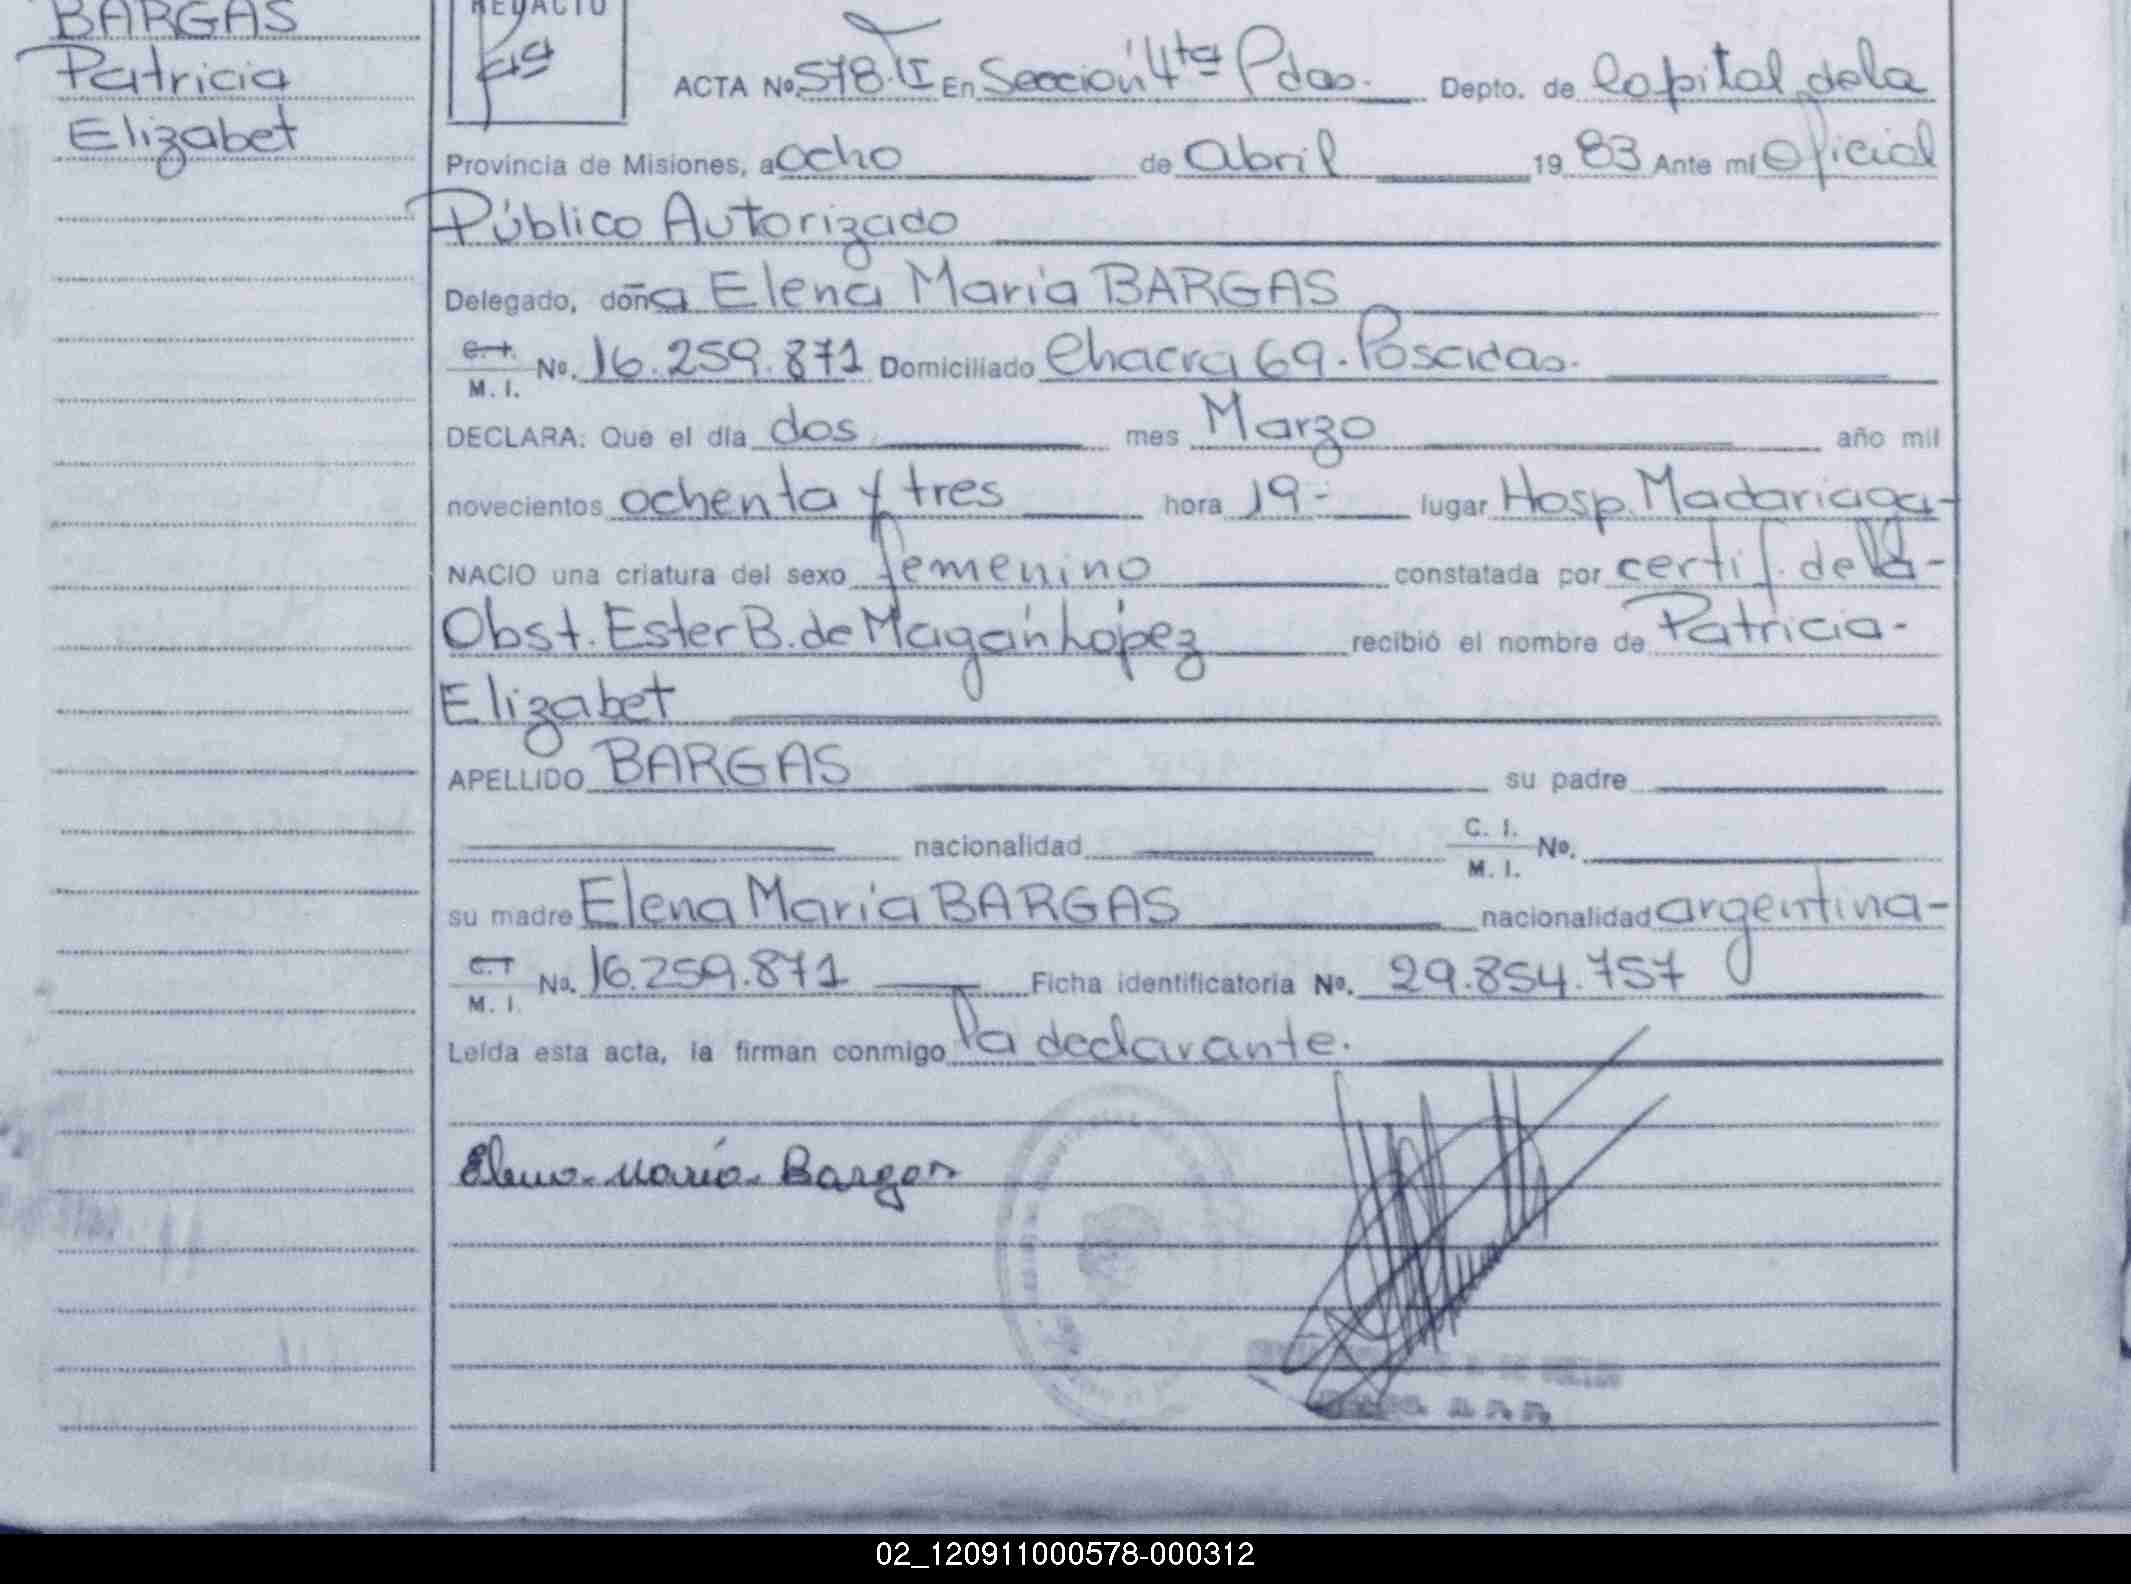 BARGAS
Patricia
Elizabet
REDACTO
ACTA Nº 578. VI En Sección 4ta Pdas. Depto. de Capital de la
Provincia de Misiones, a ocho de abril 1983 Ante mí Oficial
Público Autorizado
Delegado, doña Elena María BARGAS
C.I. M.I. Nº. 16.259.871 Domiciliado Chacra 69. Posadas.
DECLARA: Que el día dos mes Marzo año mil
novecientos ochenta y tres hora 19- lugar Hosp. Madariaga-
NACIO una criatura del sexo femenino constatada por certif. de la-
Obst. Ester B. de Magán López recibió el nombre de Patricia-
Elizabet
APELLIDO BARGAS su padre
nacionalidad C. I. M. I. Nº.
su madre Elena María BARGAS nacionalidad argentina-
C.I. M. I. Nº. 16.259.871 Ficha identificatoria Nº. 29.854.757
Leída esta acta, la firman conmigo la declarante.
Elena María Bargas
02_120911000578-000312